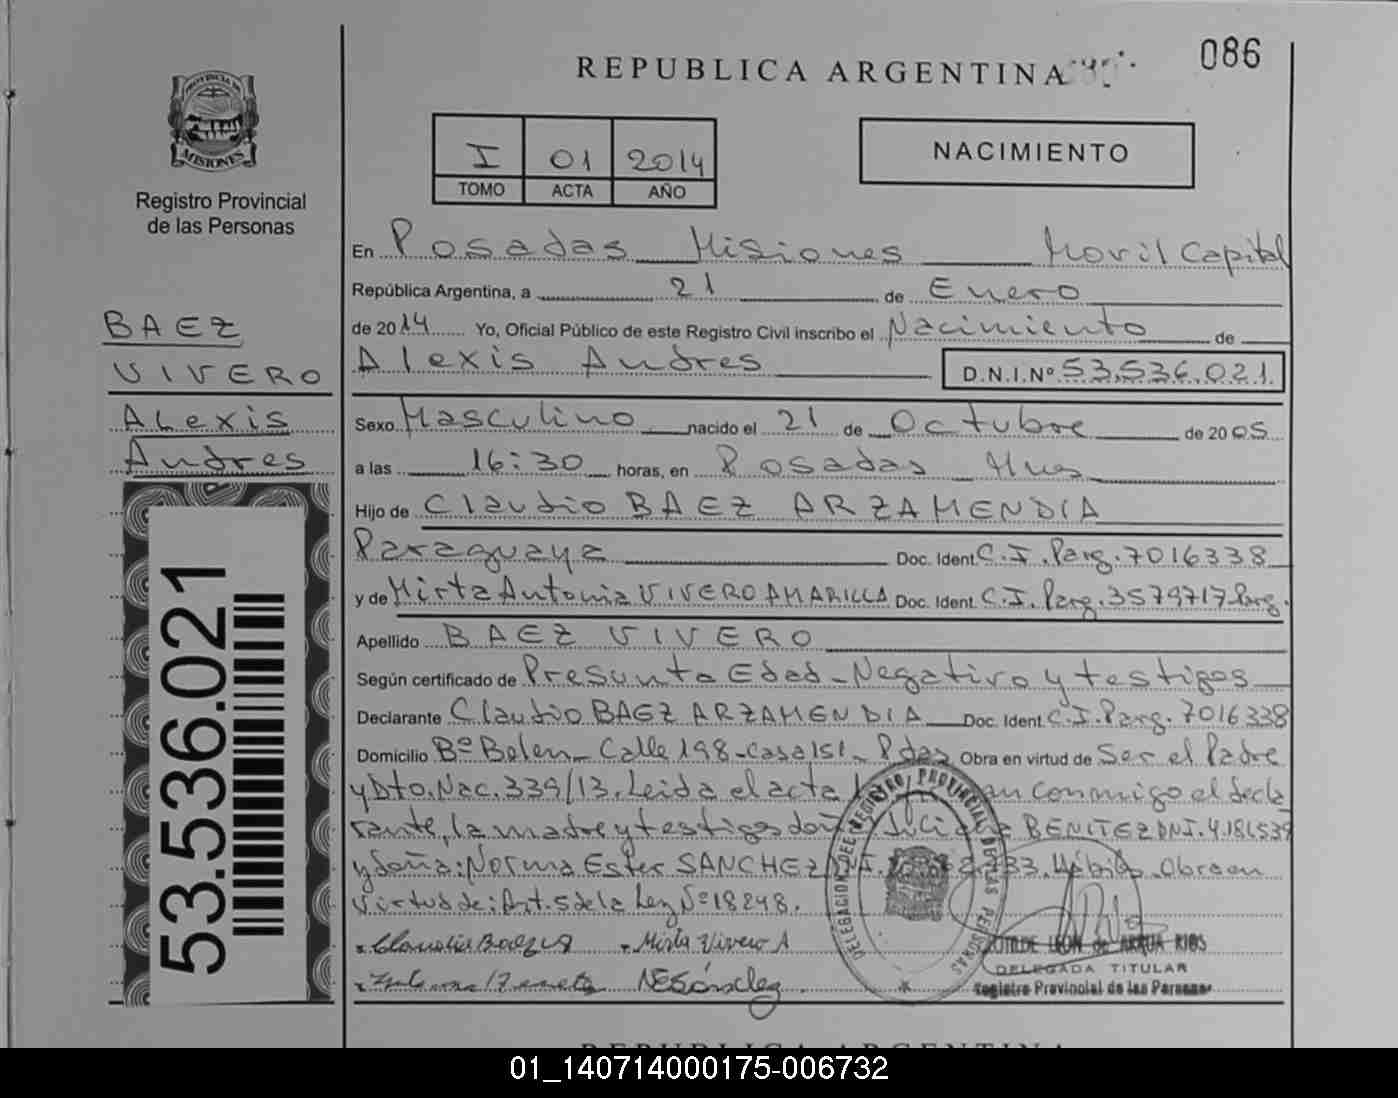 086
REPUBLICA ARGENTINA
PROVINCIA DE
MISIONES
Registro Provincial
de las Personas
I 01 2014
TOMO ACTA AÑO
NACIMIENTO
En Posadas Misiones Movil Capital
República Argentina, a 21 de Enero
de 2014 Yo, Oficial Público de este Registro Civil inscribo el Nacimiento de
Alexis Andres D.N.I.Nº 53.536.021.
BAEZ
VIVERO
ALexis
Andres
53.536.021
Sexo Masculino nacido el 21 de Octubre de 2005
a las 16:30 horas, en Posadas Mnes
Hijo de Claudio BAEZ ARZAMENDIA
Paraguaya Doc. Ident. C.I. Parg. 7016338
y de Mirta Antonia VIVERO AMARILLA Doc. Ident. C.I. Parg. 3579717 Parg.
Apellido BAEZ VIVERO
Según certificado de Presunta Edad - Negativo y testigos
Declarante Claudio BAEZ ARZAMENDIA Doc. Ident. C.I. Parg. 7016338
Domicilio Bº Belen - Calle 198 - Casa 151 - Pdas Obra en virtud de Ser el Padre
y Dto. Nac. 339/13. Leida el acta conmigo el decla
rante, la madre y testigos BENITEZ DNI.
y doña: Norma Ester SANCHEZ Obra en
virtud de: Art. 5 de la Ley Nº 18248.
DELEGACION DEL REGISTRO PROVINCIAL DE LAS PERSONAS
Mirta Vivero A
LEON de RIOS
DELEGADA TITULAR
Registro Provincial de las Personas
REPUBLICA ARGENTINA
01_140714000175-006732